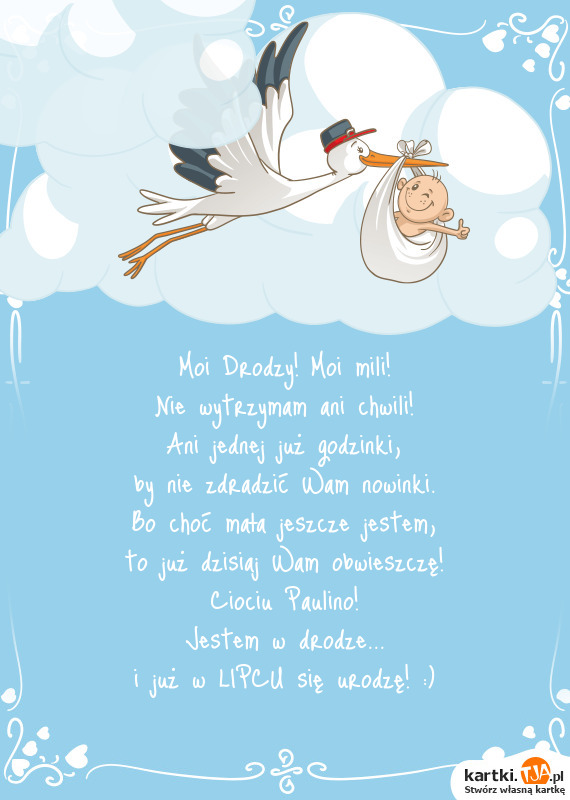 Moi Drodzy! Moi mili!
Nie wytrzymam ani chwili!
Ani jednej już godzinki,
by nie zdradzić Wam nowinki.
Bo choć mała jeszcze jestem,
to już dzisiaj Wam obwieszczę!
Ciociu Paulino!
Jestem w drodze...
i już w LIPCU się urodzę! :)
kartki.TJA.pl
Stwórz własną kartkę